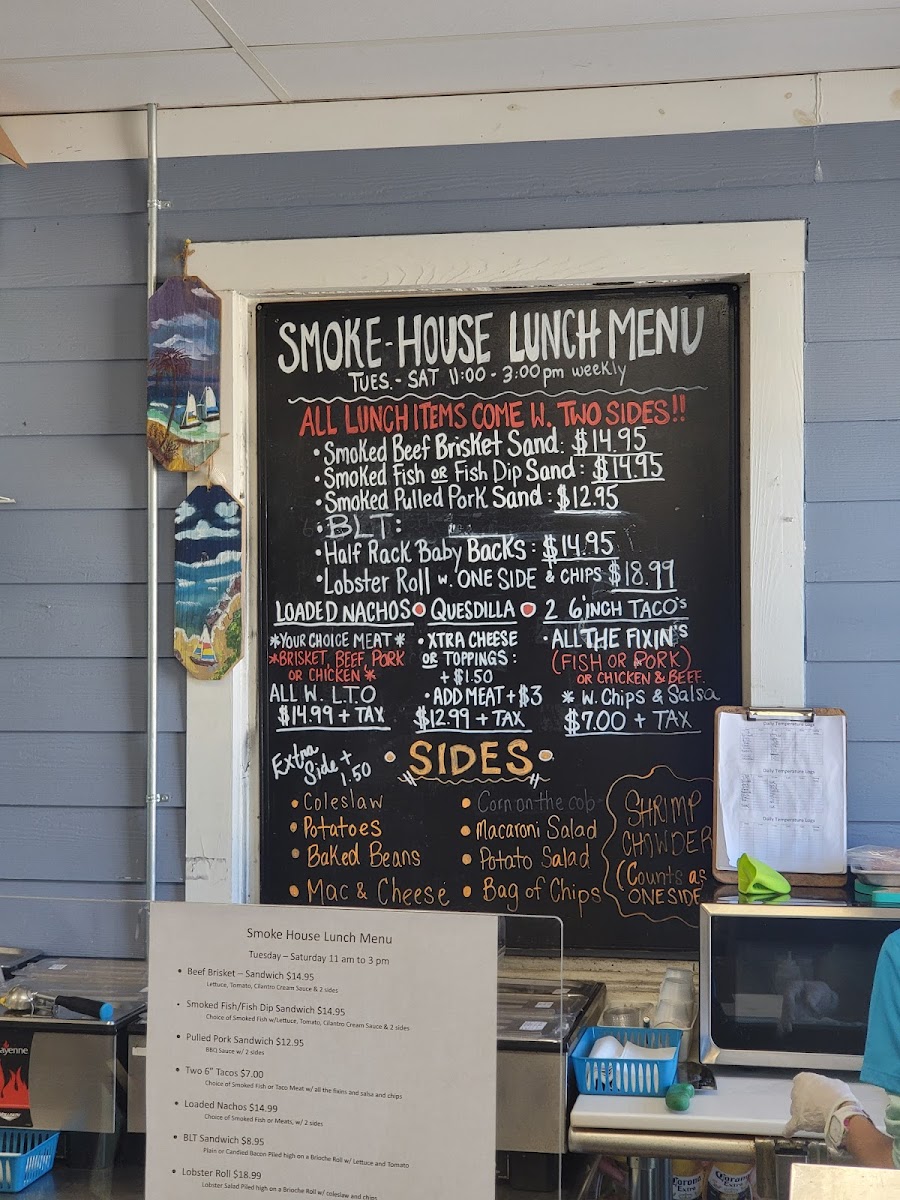 SMOKE-HOUSE LUNCH MENU
TUES.- SAT 11:00 - 3:00pm weekly
ALL LUNCH ITEMS COME W. TWO SIDES!!
• Smoked Beef Brisket Sand: $14.95
• Smoked Fish OR Fish Dip Sand: $14.95
• Smoked Pulled Pork Sand: $12.95
• BLT:
• Half Rack Baby Backs: $14.95
• Lobster Roll w. ONE SIDE & CHIPS $18.99
LOADED NACHOS
*YOUR CHOICE MEAT*
*BRISKET, BEEF, PORK
OR CHICKEN*
ALL W. L.T.O
$14.99 + TAX
QUESDILLA
• XTRA CHEESE
OR TOPPINGS:
+ $1.50
• ADD MEAT + $3
$12.99 + TAX
2 6"INCH TACO'S
• ALL THE FIXIN'S
(FISH OR PORK)
OR CHICKEN & BEEF.
* W. Chips & Salsa
$7.00 + TAX
Extra
Side +
1.50
• SIDES •
• Coleslaw
• Potatoes
• Baked Beans
• Mac & Cheese
• Corn on the cob
• Macaroni Salad
• Potato Salad
• Bag of Chips
SHRIMP
CHOWDER
(Counts as
ONE SIDE
Daily Temperature Logs
Daily Temperature Logs
Daily Temperature Logs
Smoke House Lunch Menu
Tuesday – Saturday 11 am to 3 pm
• Beef Brisket – Sandwich $14.95
Lettuce, Tomato, Cilantro Cream Sauce & 2 sides
• Smoked Fish/Fish Dip Sandwich $14.95
Choice of Smoked Fish w/Lettuce, Tomato, Cilantro Cream Sauce & 2 sides
• Pulled Pork Sandwich $12.95
BBQ Sauce w/ 2 sides
• Two 6" Tacos $7.00
Choice of Smoked Fish or Taco Meat w/ all the fixins and salsa and chips
• Loaded Nachos $14.99
Choice of Smoked Fish or Meats, w/ 2 sides
• BLT Sandwich $8.95
Plain or Candied Bacon Piled high on a Brioche Roll w/ Lettuce and Tomato
• Lobster Roll $18.99
Lobster Salad Piled high on a Brioche Roll w/ coleslaw and chips
ayenne
Corona
Extra
Corona
Extra